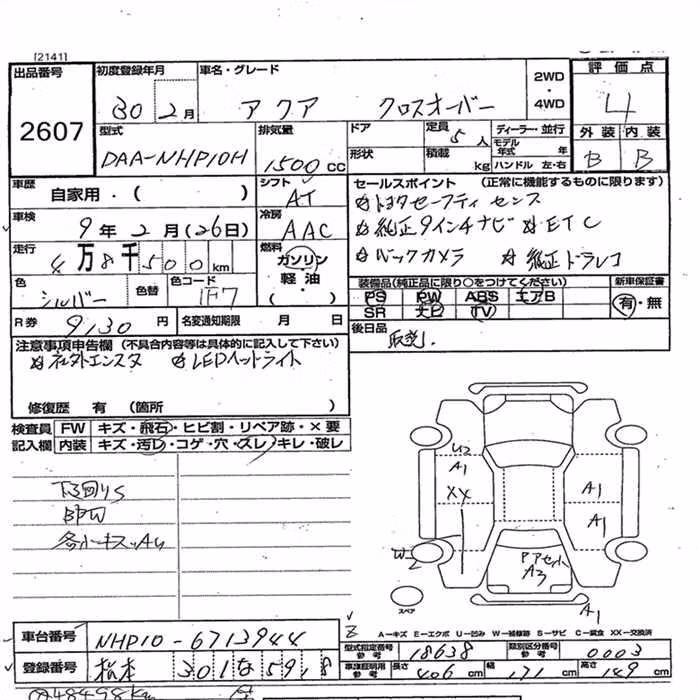 [2141]
出品番号 初度登録年月 車名・グレード 2WD・4WD 評価点
2607 30 2月 アクア クロスオーバー 4
型式 排気量 ドア 定員 5人 ディーラー・並行 外装 内装
DAA-NHP10H 1500cc 形状 積載 kg モデル年式 年 ハンドル 左・右 B B
車歴 自家用・( ) シフト AT セールスポイント (正常に機能するものに限ります)
☆トヨタセーフティセンス
車検 9年2月(26日) 冷房 AAC ☆純正9インチナビ ☆ETC
走行 4万8千500km 燃料 ガソリン・軽油・( ) ☆バックカメラ ☆純正ドラレコ
色 シルバー 色替 色コード 1F7 装備品(純正品に限り○をつけてください) 新車保証書
PS PW ABS エアB 有・無
SR ナビ TV
R券 9,130円 名変通知期限 月 日 後日品 取説
注意事項申告欄 (不具合内容等は具体的に記入して下さい)
☆LEDヘッドライト
修復歴 有 (箇所
検査員記入欄 FW キズ・飛石・ヒビ割・リペア跡・×要
内装 キズ・汚レ・コゲ・穴・スレ・キレ・破レ
下回りS
U2
A1
XX
A1
A1
W2
A3
A1
スペア
A-キズ E-エクボ U-凹み W-補修跡 S-サビ C-腐食 XX-交換済
車台番号 NHP10-6713944 型式指定番号 18638 類別区分番号 0003
登録番号 松本 301 な 5918 車庫証明用参考 長さ 406cm 幅 171cm 高さ 149cm
48498km